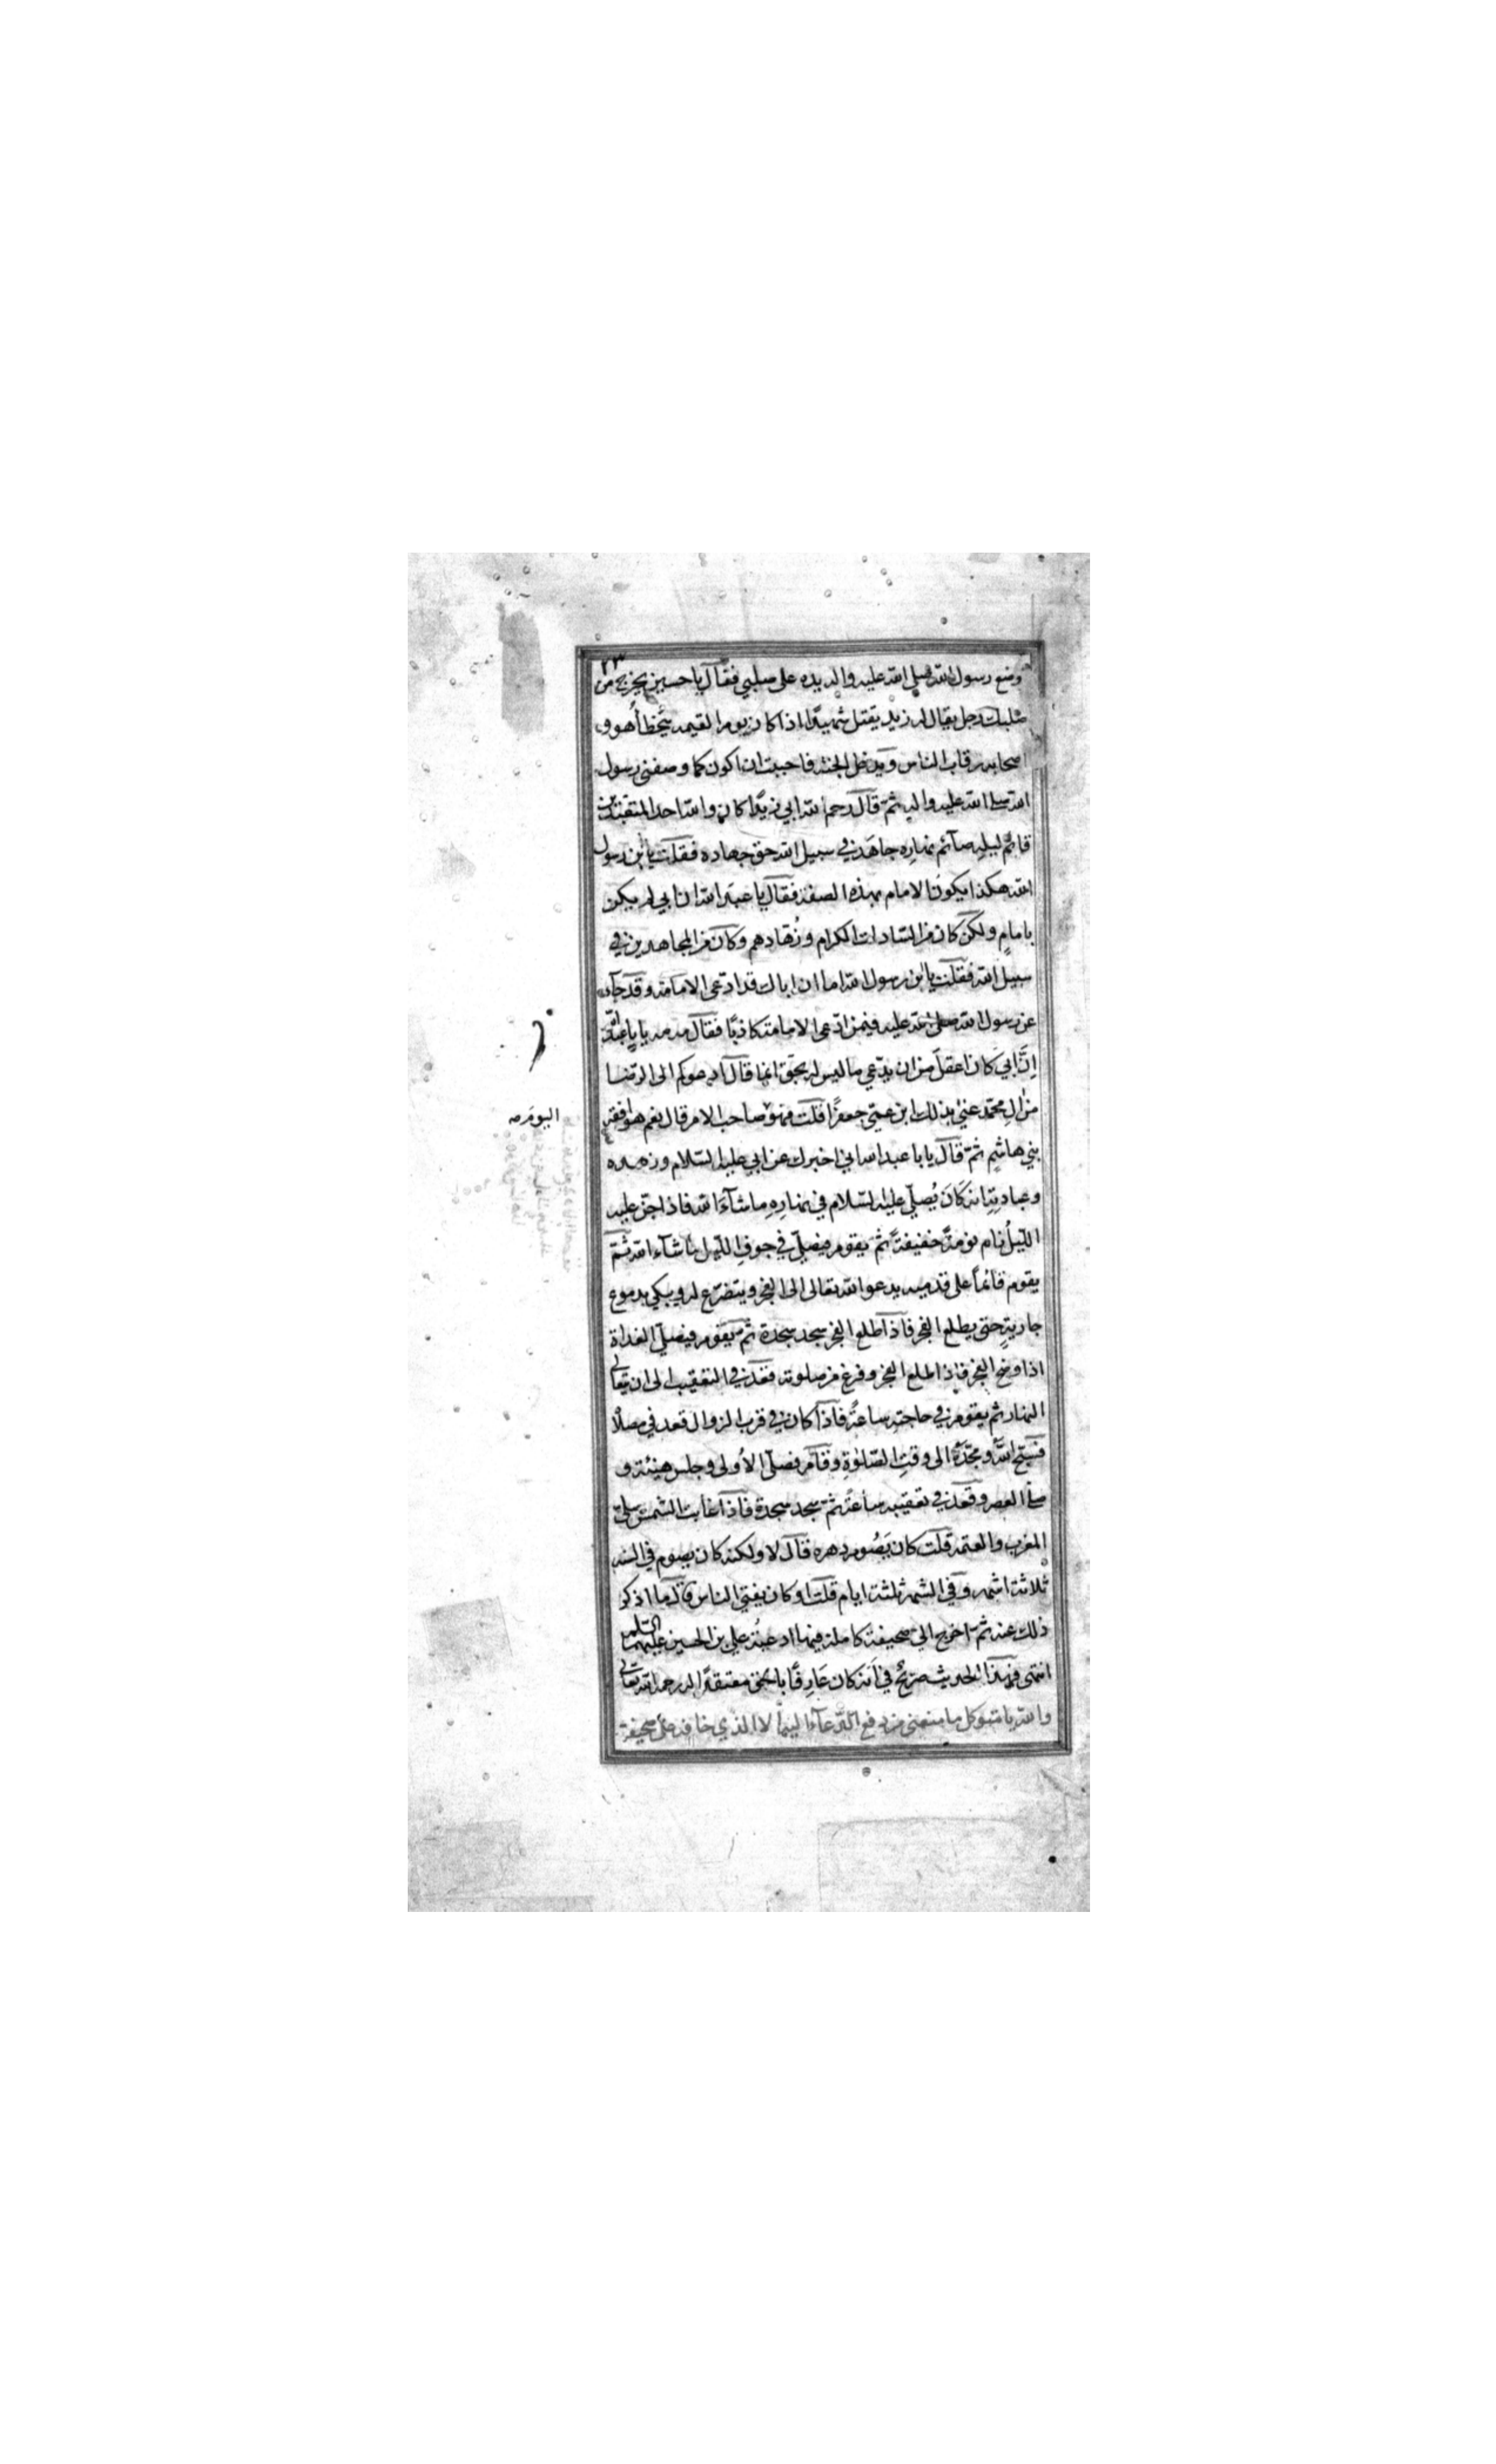 ٢٣
وضع رسول الله صلى الله عليه واله يده على صلبي فقال يا حسين يخرج من
صلبك رجل يقال له زيد يقتل شهيدًا اذا كان يوم القيمه يتخطأ هو و
اصحابه رقاب الناس ويدخل الجنة فاحببت ان اكون كما وصفني رسول
الله صلى الله عليه واله ثم قال رحم الله ابي زيدًا كان والله احد المتعبدين
قائم ليله صائم نهاره جاهد في سبيل الله حق جهاده فقلت يا بن رسول
الله هكذا يكون الامام بهذه الصفة فقال يا عبد الله ان ابي لم يكن
بامام ولكن كان من السادات الكرام وزهادهم وكان من المجاهدين في
سبيل الله فقلت يا بن رسول الله اما ان اباك قد ادعى الامامة وقد جاء
عن رسول الله صلى الله عليه فيمن ادعى الامامة كاذبًا فقال مه مه يا با عبد الله
ان ابي كان اعقل من ان يدعي ما ليس له بحق انما قال ادعوكم الى الرضا
من ال محمد عنى بذلك ابن عمي جعفرًا قلت فهو صاحب الامر قال نعم هو افقه
بني هاشم ثم قال يا با عبد الله اني اخبرك عن ابي عليه السلام وزهده
وعبادته انه كان يصلي عليه السلام في نهاره ما شاء الله فاذا جن عليه
الليل نام نومة خفيفة ثم يقوم فيصلي في جوف الليل ما شاء الله ثم
يقوم قائمًا على قدميه يدعو الله تعالى الى الفجر ويتضرع له ويبكي بدموع
جارية حتى يطلع الفجر فاذا طلع الفجر سجد سجدة ثم يقوم فيصلي الغداة
اذا وضح الفجر فاذا طلع الفجر وفرغ من صلوته فقعد في التعقيب الى ان يتعالى
النهار ثم يقوم في حاجته ساعة فاذا كان في قرب الزوال قعد في مصلاه
فسبح الله ومجده الى وقت الصلوة وقام فصلى الاولى وجلس هنيئة و
صلى العصر وقعد في تعقيبه ساعة ثم سجد سجدة فاذا غابت الشمس صلى
المغرب والعتمه قلت كان يصوم دهره قال لا ولكنه كان يصوم في السنه
ثلاثة اشهر وفي الشهر ثلثة ايام قلت او كان يفتي الناس قال ما اذكر
ذلك عنه ثم اخرج الي صحيفة كاملة فيها ادعية علي بن الحسين عليهما السلم
انتهى فهذا الحديث صريح في انه كان عارفًا بالحق معتقدًا له رحمه الله تعالى
والله يا متوكل ما منعني من دفع الدعاء اليه الا الذي خافه على صحيفة
اليوم صه